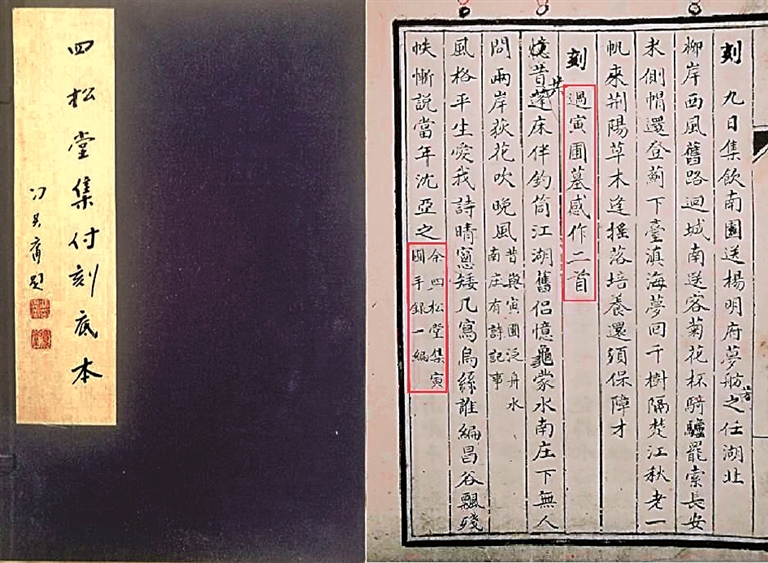 四松堂集付刻底本
冯其庸题
刻 九日集飲南園送楊明府夢舫之任湖北
柳岸西風舊路迴城南送客菊花杯騎驢罷索長安
米側帽還登薊下臺滇海夢回千樹隔楚江秋老一
帆來荆陽草木逢摇落培養還須保障才
刻 過寅圃墓感作二首
憶昔蓬床伴釣筒江湖舊侣憶龜蒙水南庄下無人
問兩岸荻花吹晚風昔與寅圃泛舟水南庄有詩記事
風格平生愛我詩晴窻矮几寫烏絲誰編昌谷飄殘
帙慚說當年沈亞之余四松堂集寅圃手録一編